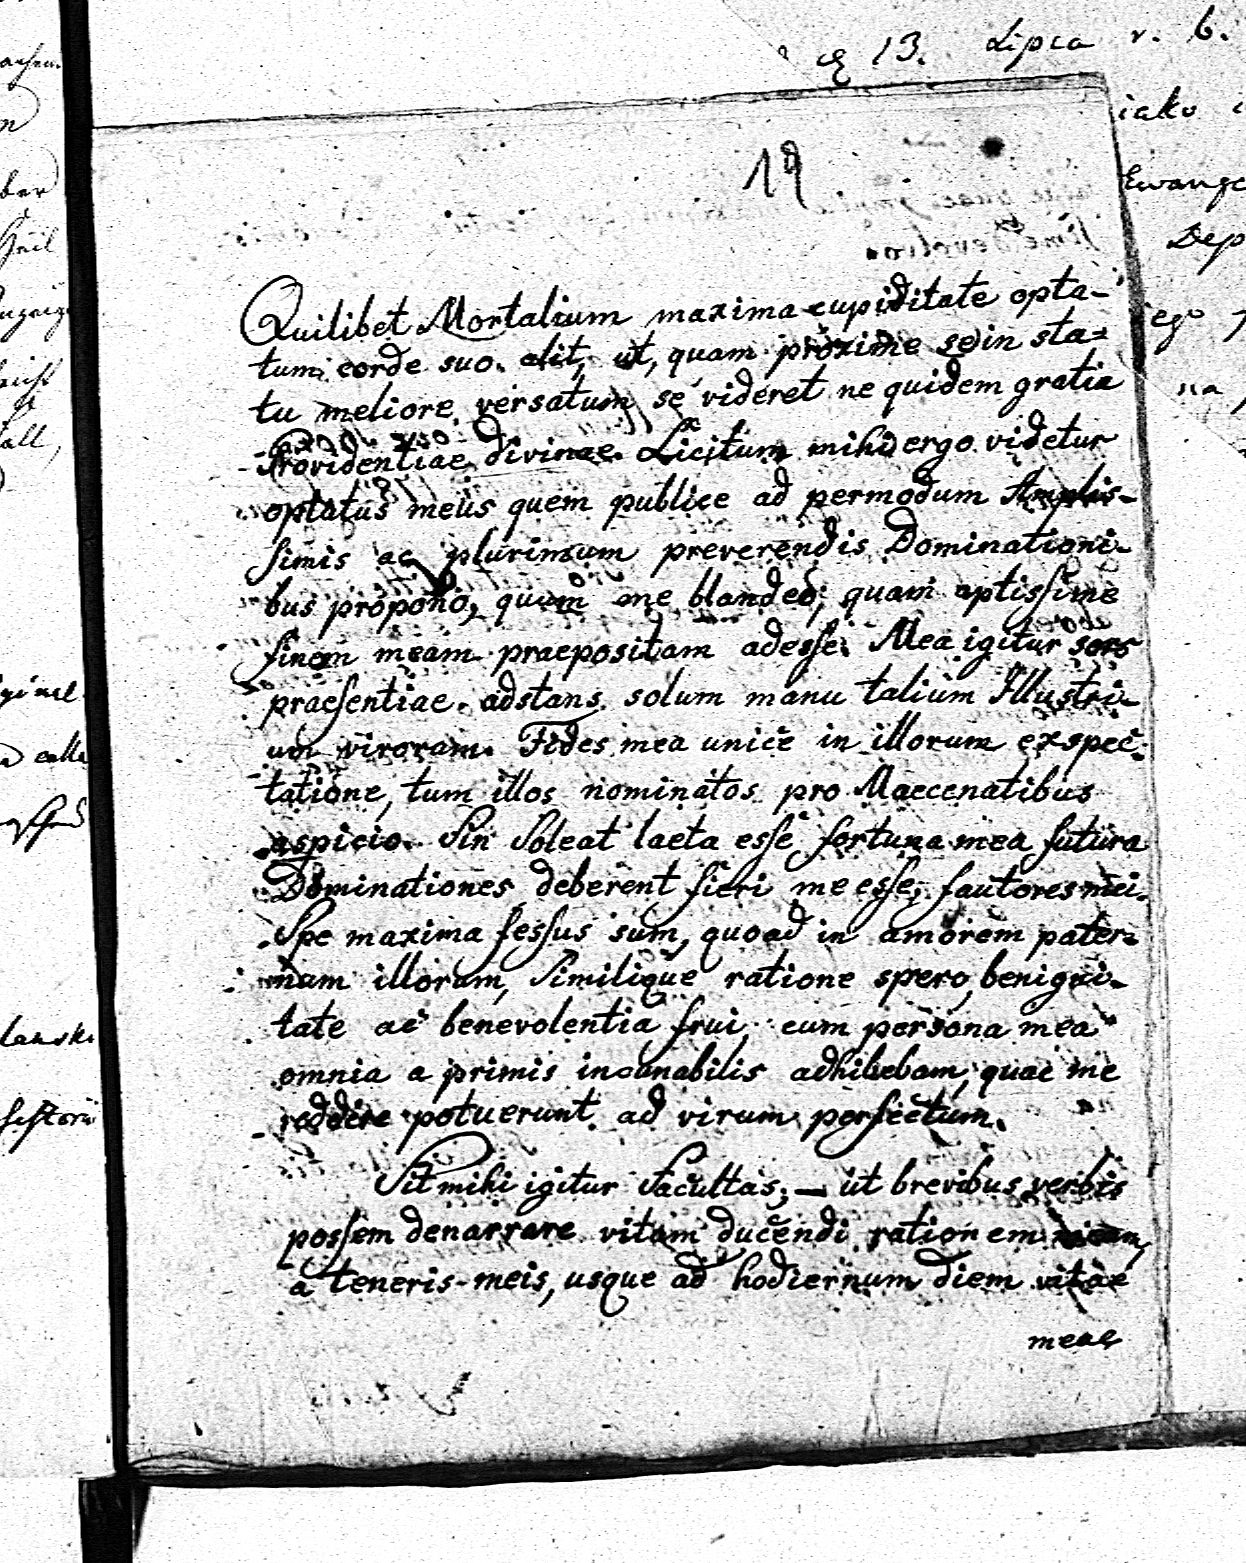 13. Lipca r. b.
iako
19
Quilibet Mortalium maxima cupiditate opta-
tum corde suo alit, ut, quam proxime se in sta=
tu meliore versatum se videret ne quidem gratia
Providentiae divinae. Licitum mihi ergo videtur
optatus meus quem publice ad permodum Amplis-
simis ac plurimum preverendis Dominationi-
bus propono, quum me blandeo, quam aptissime
finem meam praepositam adesse. Mea igitur sors
praesentiae adstans solum manu talium Illustri-
um virorum. Fides mea unice in illorum exspec-
tatione, tum illos nominatos pro Maecenatibus
aspicio. Sin soleat laeta esse fortuna mea futura
Dominationes deberent fieri me esse, fautores mei.
Spe maxima fessus sum, quoad in amorem pater=
num illorum, similique ratione spero, benigni-
tate ac benevolentia frui, cum persona mea
omnia a primis incunabilis adhibebam, quae me
reddere potuerunt ad virum perfectum.
Sit mihi igitur facultas, — ut brevibus verbis
possem denarrare vitam ducendi rationem meam,
a teneris meis, usque ad hodiernum diem vitae
meae